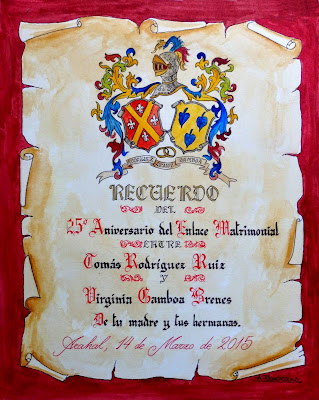 RECUERDO
DEL
25º Aniversario del Enlace Matrimonial
ENTRE
Tomás Rodríguez Ruiz
y
Virginia Gamboa Brenes
De tu madre y tus hermanas.
Arahal, 14 de Marzo de 2015